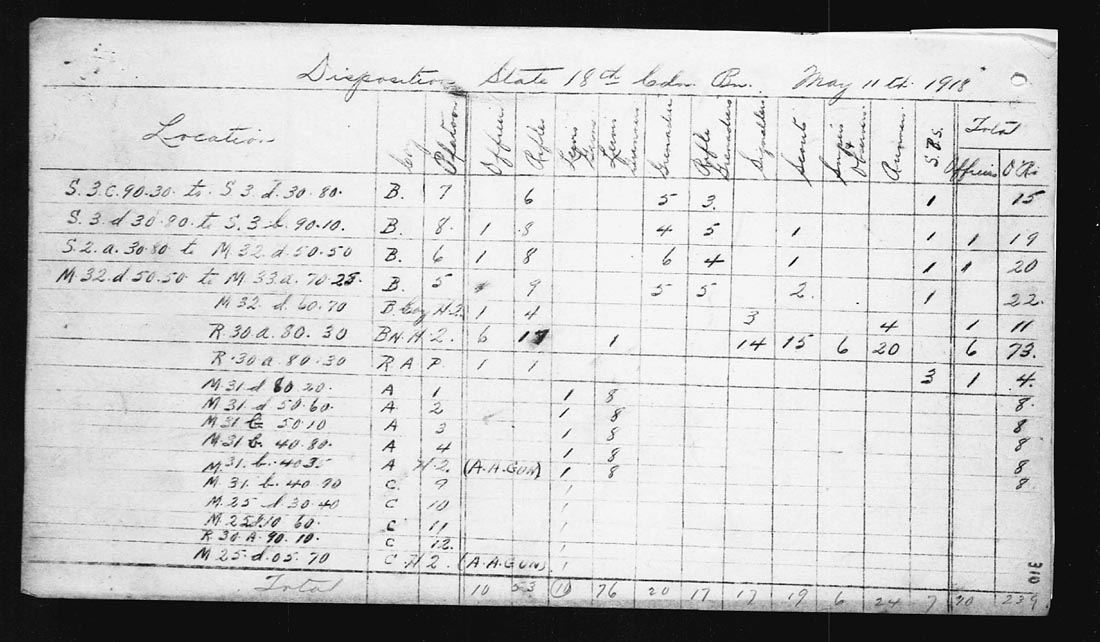 Disposition State 18th Cdn. Bn. May 11th 1918
Location Coy Platoon Officers Rifles Lewis Guns Lewis Gunners Grenadiers Rifle Grenadiers Signallers Scouts Snipers & Observers Runners S.B.s. Total Officers O'R's
S.3.c.90.30 to S.3.d.30.80. B. 7 6 5 3 1 15
S.3.d.30.80 to S.3.b.90.10. B. 8. 1 8 4 5 1 1 1 19
S.2.a.30.80 to M32.d.50.50 B. 6 1 8 6 4 1 1 1 20
M32.d.50.50 to M33.a.70.25. B. 5 9 5 5 2 1 22.
M32.d.60.70 B Coy H.Q. 1 4 3 4 1 11
R.30.a.80.30 BN. H.Q. 6 17 1 14 15 6 20 6 73.
R.30.a.80.30 R A P. 1 1 3 1 4.
M.31.d.80.20. A 1 1 8 8.
M31.d.50.60. A. 2 1 8 8
M31 b 50.10 A 3 1 8 8
M31 b. 40.80. A 4 1 8 8
M.31.b.40 35 A H Q. (A.A.GUN) 1 8 8
M.31.b.40.90 C. 9 1
M.25 d.30.40 C 10 1
M.25 10 60. C 11 1
R.30.A.90.10. C 12. 1
M25.d.05.70 C. H Q. (A.A.GUN) 1
Total 10 53 10 76 20 17 17 19 6 24 7 10 239
310